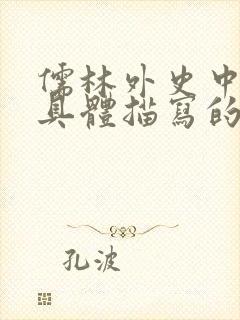 儒林外史中
具體描寫的
孔波